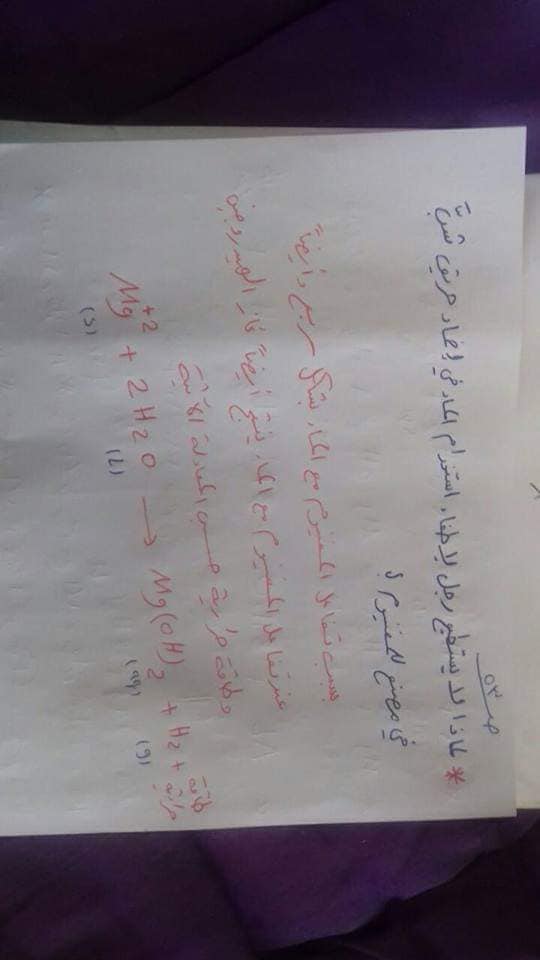 ص ٥٣
* لماذا لا يستطيع رجل الإطفاء استخدام الماء في إخماد حريق شبّ
في مصنع للمغنيزيوم ؟
بسبب تفاعل المغنيزيوم مع الماء بشكل سريع وأيضاً
عند تفاعل المغنيزيوم مع الماء ينتج أيضاً غاز الهيدروجين
وطاقة حرارية حسب المعادلة الآتية
Mg+2 + 2H2O → Mg(OH)2 + H2 + طاقة حرارية
(s) (l) (aq) (g)